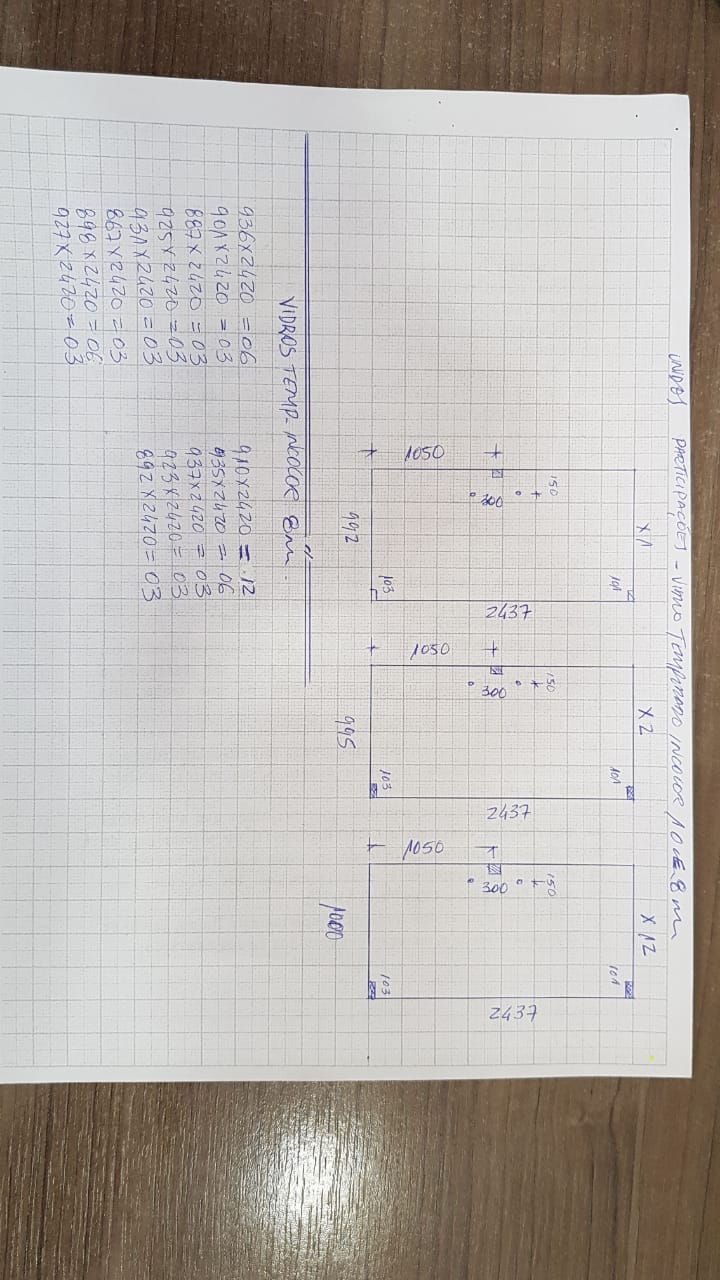 PARTICIPAÇÕES - VIDRO TEMPERADO INCOLOR 10 E 8 m
X1
X2
X12
101
101
101
150
150
150
300
300
300
1050
1050
1050
2437
2437
2437
103
103
103
992
995
1000
VIDROS TEMP. INCOLOR 8m.
936X2420 = 06
901X2420 = 03
887X2420 = 03
925X2420 = 03
931X2420 = 03
867X2420 = 03
898X2420 = 06
927X2420 = 03
910X2420 = 12
935X2420 = 06
937X2420 = 03
923X2420 = 03
892X2420 = 03